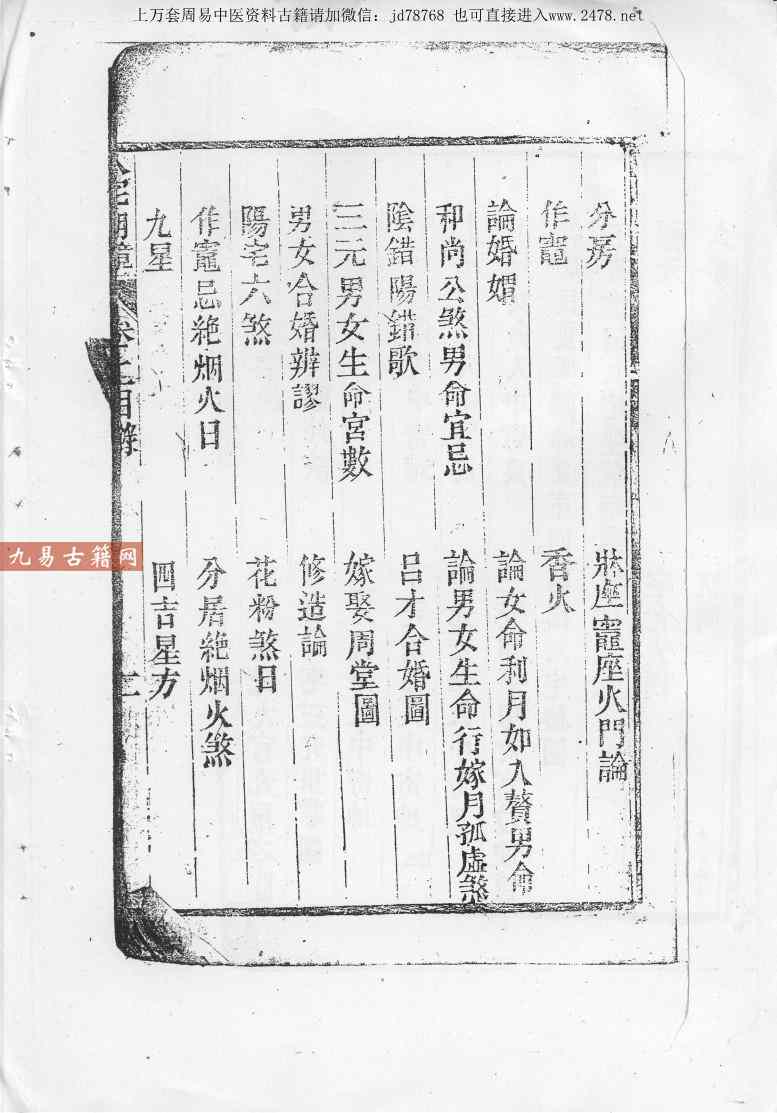 上万套周易中医资料古籍请加微信：jd78768 也可直接进入www.2478.net
分房
牀座竈座火門論
作竈
香火
論婚媢
論女命利月如入贅男命
和尚公煞男命宜忌
論男女生命行嫁月孤虛煞
陰錯陽錯歌
呂才合婚圖
三元男女生命宮數
嫁娶周堂圖
男女合婚辨謬
修造論
陽宅六煞
花粉煞日
作竈忌絶烟火日
分居絶烟火煞
九星
四吉星方
八宅明鏡
卷之目錄
九易古籍网